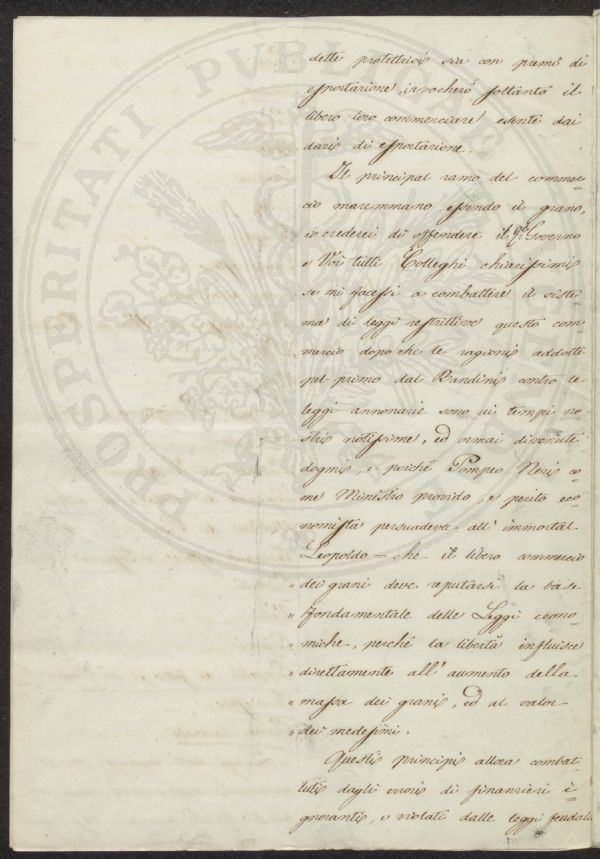 dette protettrici sia con premi di
esportazione, invocherò soltanto il
libero loro commerciare esente dai
dazi di esportazione.
Il principal ramo del commer=
cio maremmano essendo il grano,
io crederei di offendere il Governo
e Voi tutti Colleghi chiarissimi
se mi facessi a combattere il siste=
ma di leggi restrittive questo com=
mercio dopo che le ragioni addotte
pel primo dal Bandini contro le
leggi annonarie sono ai tempi no=
stri notissime, ed ormai divenute
dogmi, e poiché Pompeo Neri co=
me Ministro provido, e perito eco=
nomista persuadeva all' immortal
Leopoldo = che il libero commercio
" dei grani deve reputarsi la base
" fondamentale delle Leggi econo=
" miche, perché la libertà influisce
" direttamente all' aumento della
" massa dei grani, ed al valor
" dei medesimi.
Questi principi allora combat=
tuti dagli errori di finanzieri i=
gnoranti, e violati dalle leggi feudali
PROSPERITATI PUBLICAE